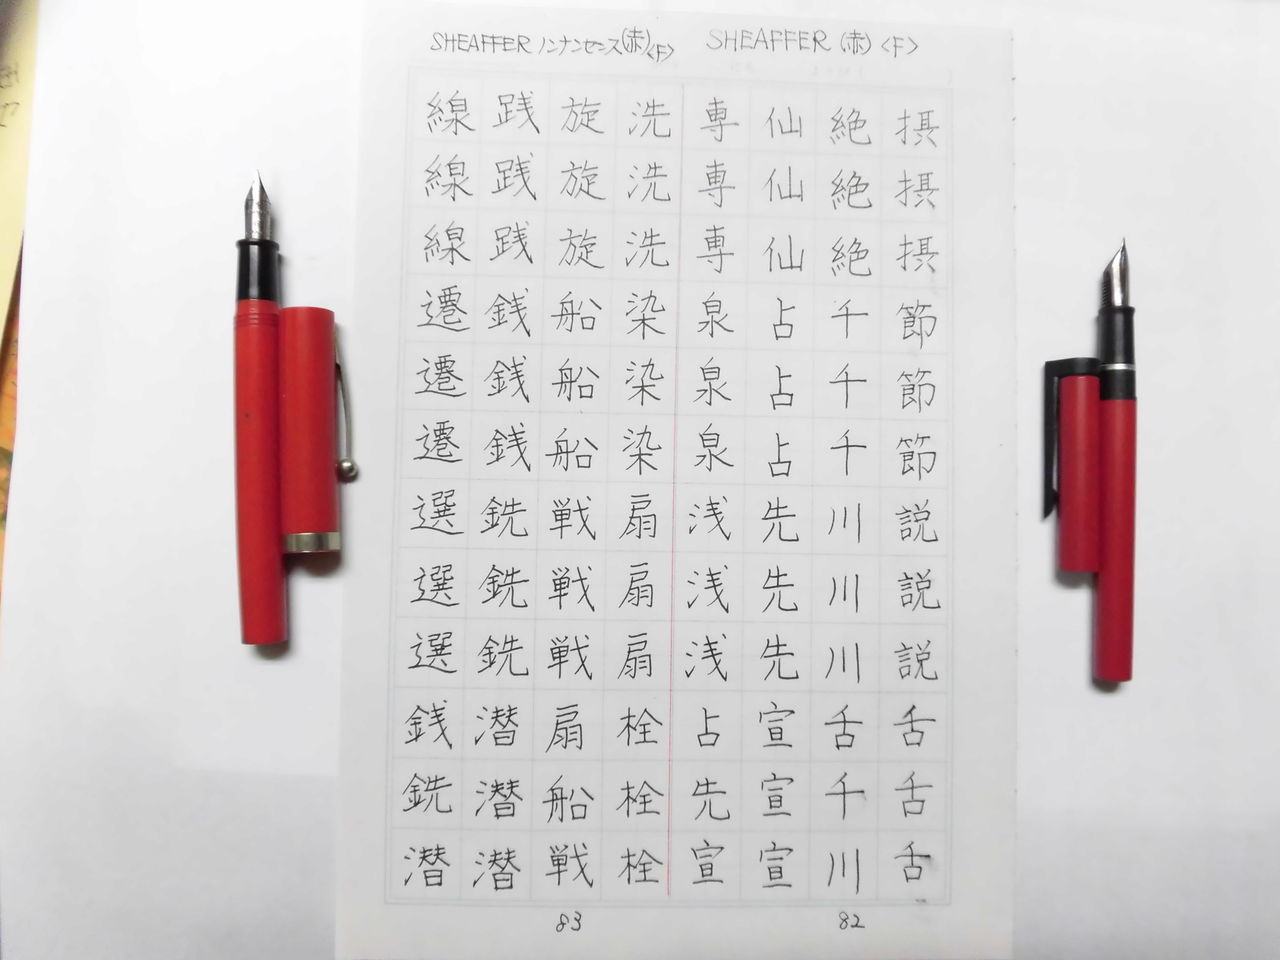 SHEAFFER (赤) <F>
摂摂摂節節節説説説舌舌舌
絶絶絶千千千川川川舌千川
仙仙仙占占占先先先宣宣宣
専専専泉泉泉浅浅浅占先宣
82
SHEAFFER ノンナンセンス(赤)<F>
洗洗洗染染染扇扇扇栓栓栓
旋旋旋船船船戦戦戦扇船戦
践践践銭銭銭銑銑銑潜潜潜
線線線遷遷遷選選選銭銑潜
83